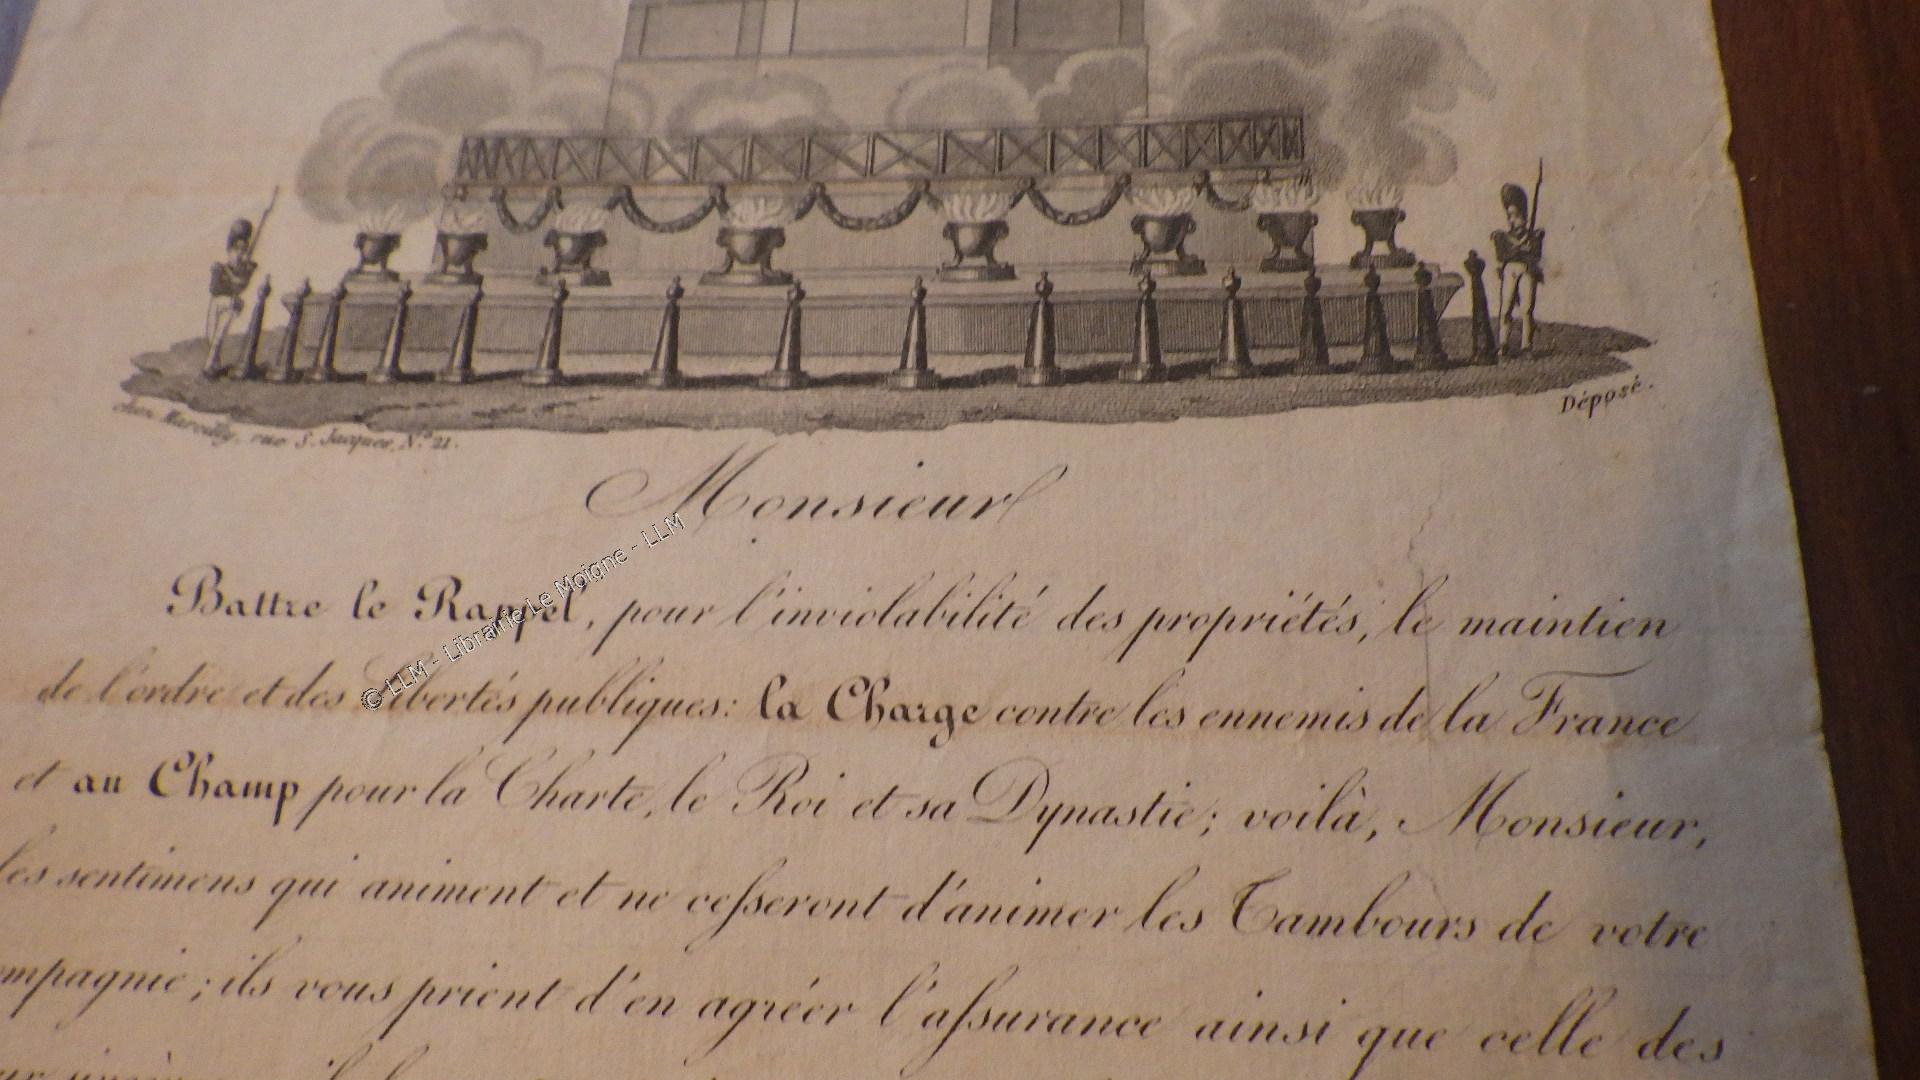 chez Marcilly, rue S. Jacques, N.º 21.
Déposé.
Monsieur
Battre le Rappel, pour l'inviolabilité des propriétés, le maintien
de l'ordre et des Libertés publiques: la Charge contre les ennemis de la France
et au Champ pour la Charte, le Roi et sa Dynastie; voilà, Monsieur,
les sentimens qui animent et ne cesseront d'animer les Tambours de votre
ompagnie; ils vous prient d'en agréer l'assurance ainsi que celle des
© LLM - Librairie Le Moigne - LLM